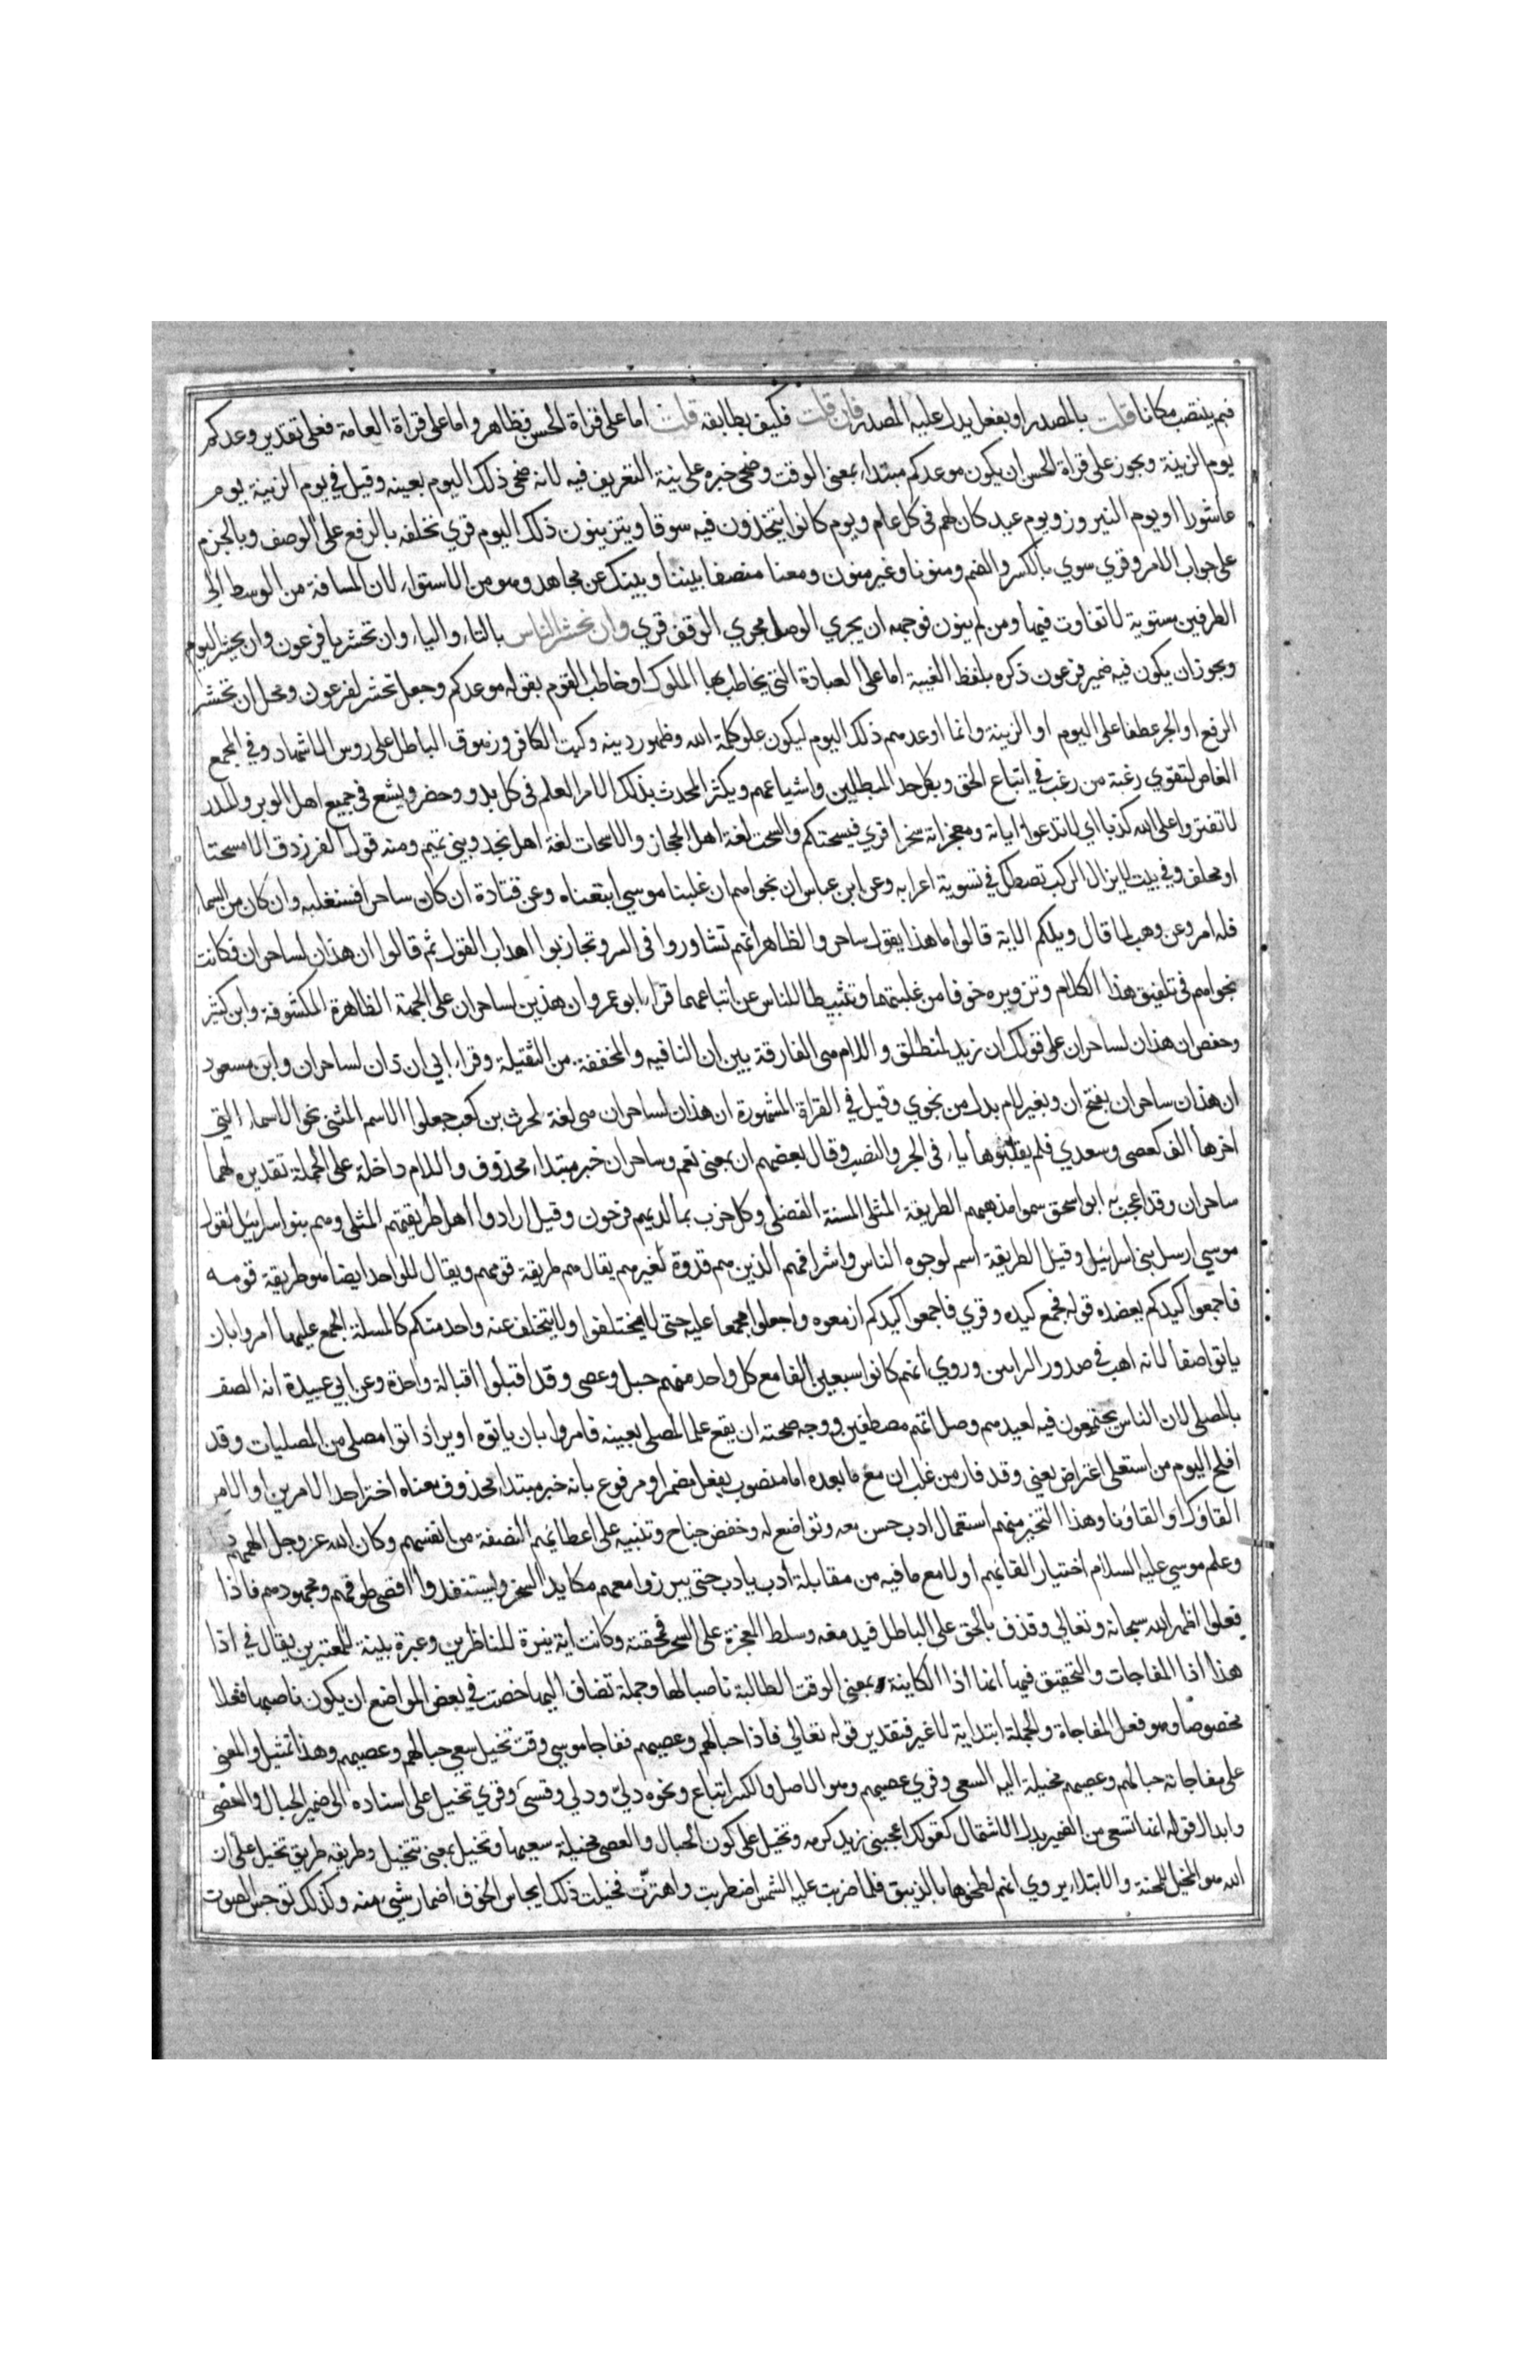 فبم ينتصب مكانا قلت بالمصدر او بفعل يدل عليه المصدر فان قلت فكيف يطابقه قلت اما على قراة الحسن فظاهر واما على قراة العامة فعلى تقدير وعدكم
يوم الزينة ويجوز على قراة الحسن ان يكون موعدكم مبتداء بمعنى الوقت وضحى خبره على بنية التعريف فيه لانه ضحى ذلك اليوم بعينه وقيل في يوم الزينة يوم
عاشورا او يوم النيروز ويوم عيد كان لهم في كل عام ويوم كانوا يتخذون فيه سوقا ويتزينون ذلك اليوم قري نخلفه بالرفع على الوصف وبالجزم
على جواب الامر وقري سوي بالكسر والضم ومنونا وغير منون ومعنا منصفا بيننا وبينك عن مجاهد وهو من الاستواء لان المسافة من الوسط الى
الطرفين مستوية لا تفاوت فيها ومن لم ينون فوجهه ان يجري الوصل مجري الوقف قري وان تحشر الناس بالتاء والياء وان تحشر يا فرعون وان يحشر اليوم
ويجوز ان يكون فيه ضمير فرعون ذكره بلفظ الغيبة اما على العبادة التي يخاطب بها الملوك او خاطب القوم بقوله موعدكم وجعل تحشر لفرعون ومحل ان تحشر
الرفع او الجر عطفا على اليوم او الزينة وانما اوعدهم ذلك اليوم ليكون علو كلمة الله وظهور دينه وكبت الكافر وزهوق الباطل على روس الاشهاد وفي المجمع
الغاص لتقوي رغبة من رغب في اتباع الحق ويكل حد المبطلين واشياعهم ويكثر المحدث بذلك الامر العلم في كل بدو وحضر ويشع في جميع اهل الوبر والمدر
لا تفتروا على الله كذبا اي لا تدعوا اياته ومعجزاته سحرا قري فيسحتكم والسحت لغة اهل الحجاز والاسحات لغة اهل نجد وبني تميم ومنه قول الفرزدق الا مسحتا
او مجلف وفي بيت لا يزال الركب تصطك في تسوية اعرابه وعن ابن عباس ان نجواهم ان غلبنا موسي اتبعناه وعن قتادة ان كان ساحرا فسنغلبه وان كان من السماء
فله امر وعن وهب لما قال ويلكم الاية قالوا ما هذا يقول ساحر والظاهر انهم تشاوروا في السر وتجاذبوا اهداب القول ثم قالوا ان هذان لساحران فكانت
نجواهم في تلفيق هذا الكلام وتزويره خوفا من غلبتهما وتثبيطا للناس عن اتباعهما قراء ابو عمرو ان هذين لساحران على الجهة الظاهرة المكشوفة وابن كثير
وحفص ان هذان لساحران على قولك ان زيد لمنطلق واللام هي الفارقة بين ان النافيه والمخففة من الثقيلة وقراء ابي ان ذان لساحران وابن مسعود
ان هذان ساحران بفتح ان وبغير لام بدل من نجوي وقيل في القراة المشهورة ان هذان لساحران هي لغة لحرث بن كعب جعلوا الاسم المثني نحو الاسماء التي
اخرها الف كعصى وسعدي فلم يقلبوها ياء في الجر والنصب وقال بعضهم ان بمعنى نعم وساحران خبر مبتداء محذوف واللام داخلة على الجملة تقديره لهما
ساحران وقد اعجب به ابو اسحق سموا مذهبهم الطريقة المثلى السنة الفضلى وكل حزب بما لديهم فرحون وقيل ارادوا اهل طريقتهم المثلى وهم بنوا اسرائيل لقول
موسي ارسل بني اسرائيل وقيل الطريقة اسم لوجوه الناس واشرافهم الذين هم قدوة لغيرهم يقال هم طريقة قومهم ويقال للواحد ايضا هو طريقة قومه
فاجمعوا كيدكم يعضده قوله فجمع كيده وقري فاجمعوا كيدكم ازمعوه واجعلوا مجمعا عليه حتى لا يختلفوا ولا يتخلف عنه واحد منكم كالمسلة المجمع عليها امروا بان
ياتوا صفا لانه اهب في صدور الراين وروي انهم كانوا سبعين الفا مع كل واحد منهم حبل وعصى وقد اقبلوا اقبالة واحدة وعن ابي عبيدة انه الصف
بالمصلى لان الناس يجتمعون فيه لعيدهم وصل انهم مصطفين ووجه صحته ان يقع علما لمصلى بعينه فامروا بان ياتوه او يراد اتوا مصلى من المصليات وقد
افلح اليوم من استعلى اعتراض يعني وقد فاز من غلب ان مع ما بعده اما منصوب بفعل مضمر او مرفوع بانه خبر مبتداء محذوف معناه اختر احد الامرين او الامر
القاؤك او القاؤنا وهذا التخير منهم استعمال ادب حسن معه وتواضع له وخفض جناح وتنبيه على اعطائهم النصفة من انفسهم وكان الله عز وجل الهمهم
وعلم موسي عليه السلام اختيار القائهم اولا مع ما فيه من مقابلة ادب بادب حتى يبرزوا معهم مكايد السحر ويستنفدوا اقصى طوقهم ومجهودهم فاذا
فعلوا اظهر الله سبحانه وتعالي وقذف بالحق على الباطل فيدمغه وسلط المعجزة على السحر فمحقته وكانت اية نيرة للناظرين وعبرة بينة للمعتبرين يقال في اذا
هذا اذا المفاجات والتحقيق فيها انها اذا الكاينة بمعنى الوقت الطالبة ناصبا لها وجملة تضاف اليها خصت في بعض المواضع ان يكون ناصبها فعلا
مخصوصا وهو فعل المفاجاة والجملة ابتداية لا غير فتقدير قوله تعالي فاذا حبالهم وعصيهم ففاجا موسي وقت تخيل سعي حبالهم وعصيهم وهذا تمثيل والمعنى
على مفاجاته حبالهم وعصيهم مخيلة اليه السعى وقري عصيهم وهو الاصل والكسر اتباع ونحوه دليّ ودلي وقسي وقري تخيل على اسناده الى ضمير الحبال والعصى
وابدال قوله انها تسعى من الضمير بدل الاشتمال كقولك اعجبني زيد كرمه وتخيل على كون الحبال والعصى مخيلة سعيها وتخيل بمعنى تتخيل وطريقه طريق تخيل على ان
الله هو المخيل للمحنة والابتلاء يروي انهم لطخوها بالزيبق فلما ضربت عليه الشمس اضطربت واهتزت فخيلت ذلك ايجاس الخوف اضمار شيئ منه وكذلك توجس الصوت